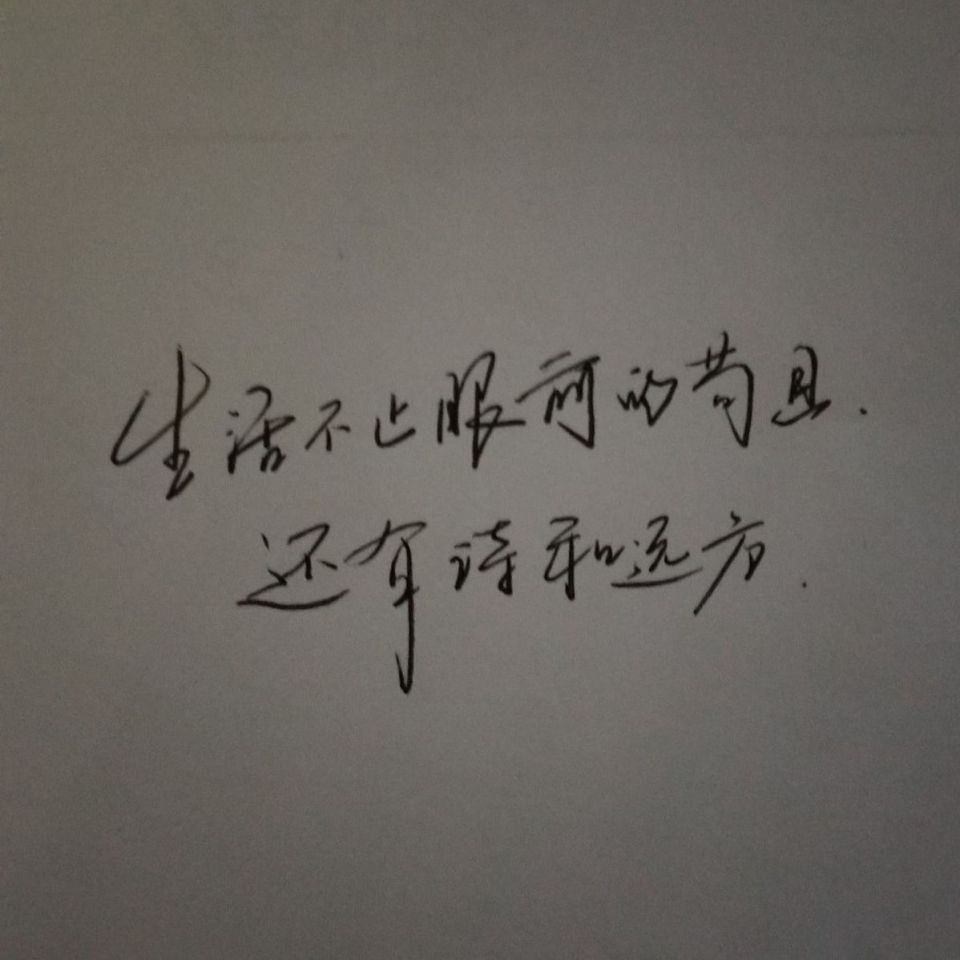 生活不止眼前的苟且.
还有诗和远方.